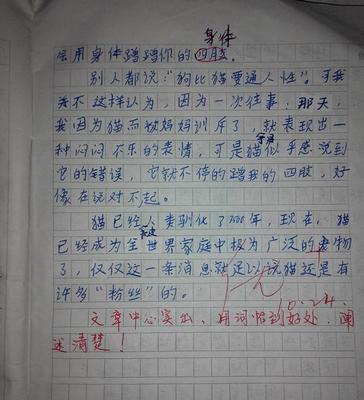 身体
会用身体蹭蹭你的四肢。
别人都说:“狗比猫要通人性”。可我
并不这样认为,因为一次往事:那天,
我因为猫而被妈妈训斥了,就表现出一
种闷闷不乐的表情,可是猫似乎感觉到
它的错误,它就不停的蹭我的四肢,好
像在说对不起。
猫已经人类驯化了3500年,现在,猫
已经成为全世界家庭中极为广泛的宠物
了,仅仅这一条消息就足以说猫还是有
许多“粉丝”的。
优
10.24.
文章中心突出、用词恰到好处、阐
述清楚!